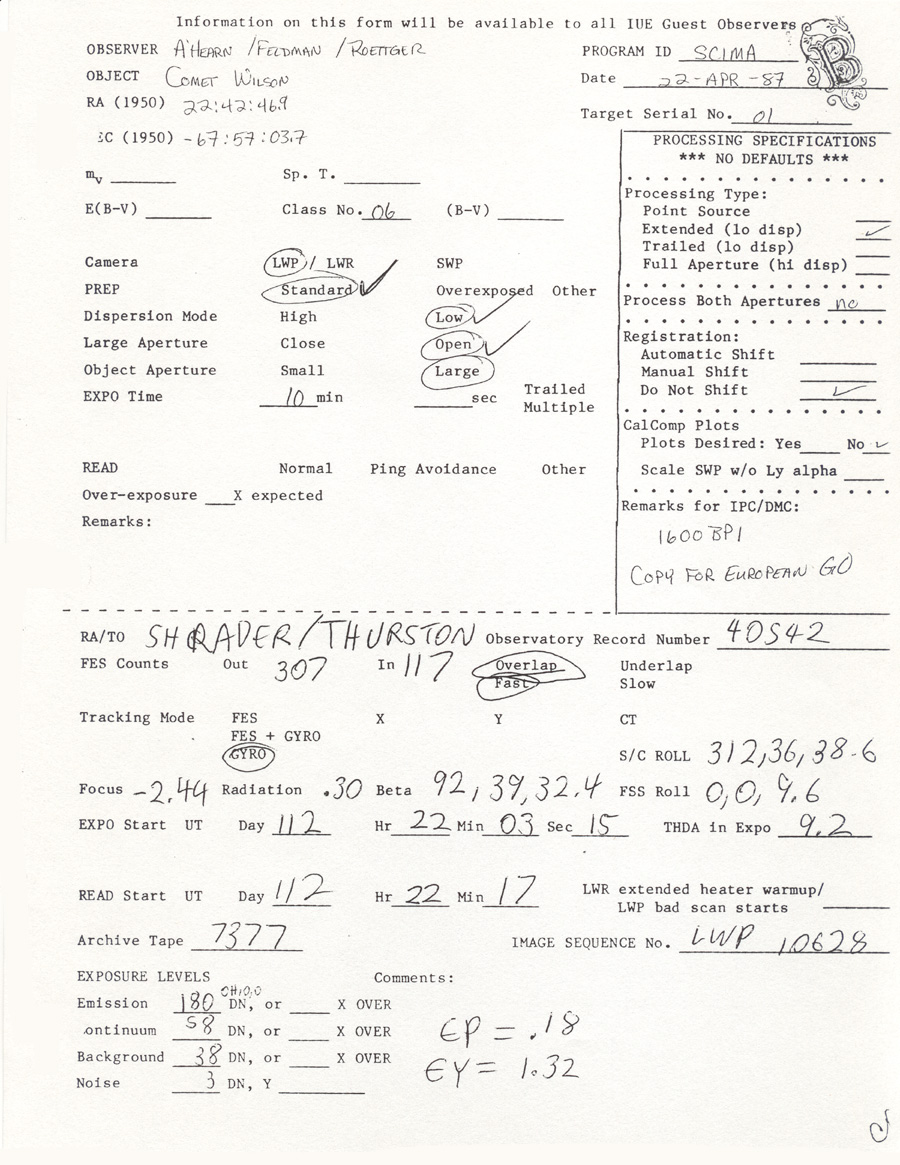 Information on this form will be available to all IUE Guest Observers
OBSERVER A'HEARN / FELDMAN / ROETTGER PROGRAM ID SCIMA
B
OBJECT COMET WILSON Date 22-APR-87
RA (1950) 22:42:46.9
Target Serial No. 01
EC (1950) -67:57:03.7
PROCESSING SPECIFICATIONS
*** NO DEFAULTS ***
mv ______ Sp. T. ______
Processing Type:
E(B-V) ______ Class No. 06 (B-V) ______
Point Source ___
Extended (lo disp) ✓
Trailed (lo disp) ___
Full Aperture (hi disp) ___
Camera LWP / LWR SWP
PREP Standard ✓ Overexposed Other
Process Both Apertures no
Dispersion Mode High Low ✓
Registration:
Large Aperture Close Open ✓
Automatic Shift ______
Object Aperture Small Large
Manual Shift ______
Do Not Shift ✓
EXPO Time 10 min ______ sec Trailed
Multiple
CalComp Plots
Plots Desired: Yes____ No ✓
READ Normal Ping Avoidance Other
Scale SWP w/o Ly alpha ____
Over-exposure ___X expected
Remarks for IPC/DMC:
Remarks:
1600 BPI
COPY FOR EUROPEAN GO
RA/TO SHRADER/THURSTON Observatory Record Number 40542
FES Counts Out 307 In 117 Overlap Underlap
Fast Slow
Tracking Mode FES X Y CT
FES + GYRO
GYRO S/C ROLL 312,36,38.6
Focus -2.44 Radiation .30 Beta 92,39,32.4 FSS Roll 0,0,9.6
EXPO Start UT Day 112 Hr 22 Min 03 Sec 15 THDA in Expo 9.2
READ Start UT Day 112 Hr 22 Min 17 LWR extended heater warmup/
LWP bad scan starts ______
Archive Tape 7377 IMAGE SEQUENCE No. LWP 10628
EXPOSURE LEVELS Comments:
OH(0,0)
Emission 180 DN, or ____ X OVER
ontinuum 58 DN, or ____ X OVER
EP = .18
Background 38 DN, or ____ X OVER
EY = 1.32
Noise 3 DN, Y ________